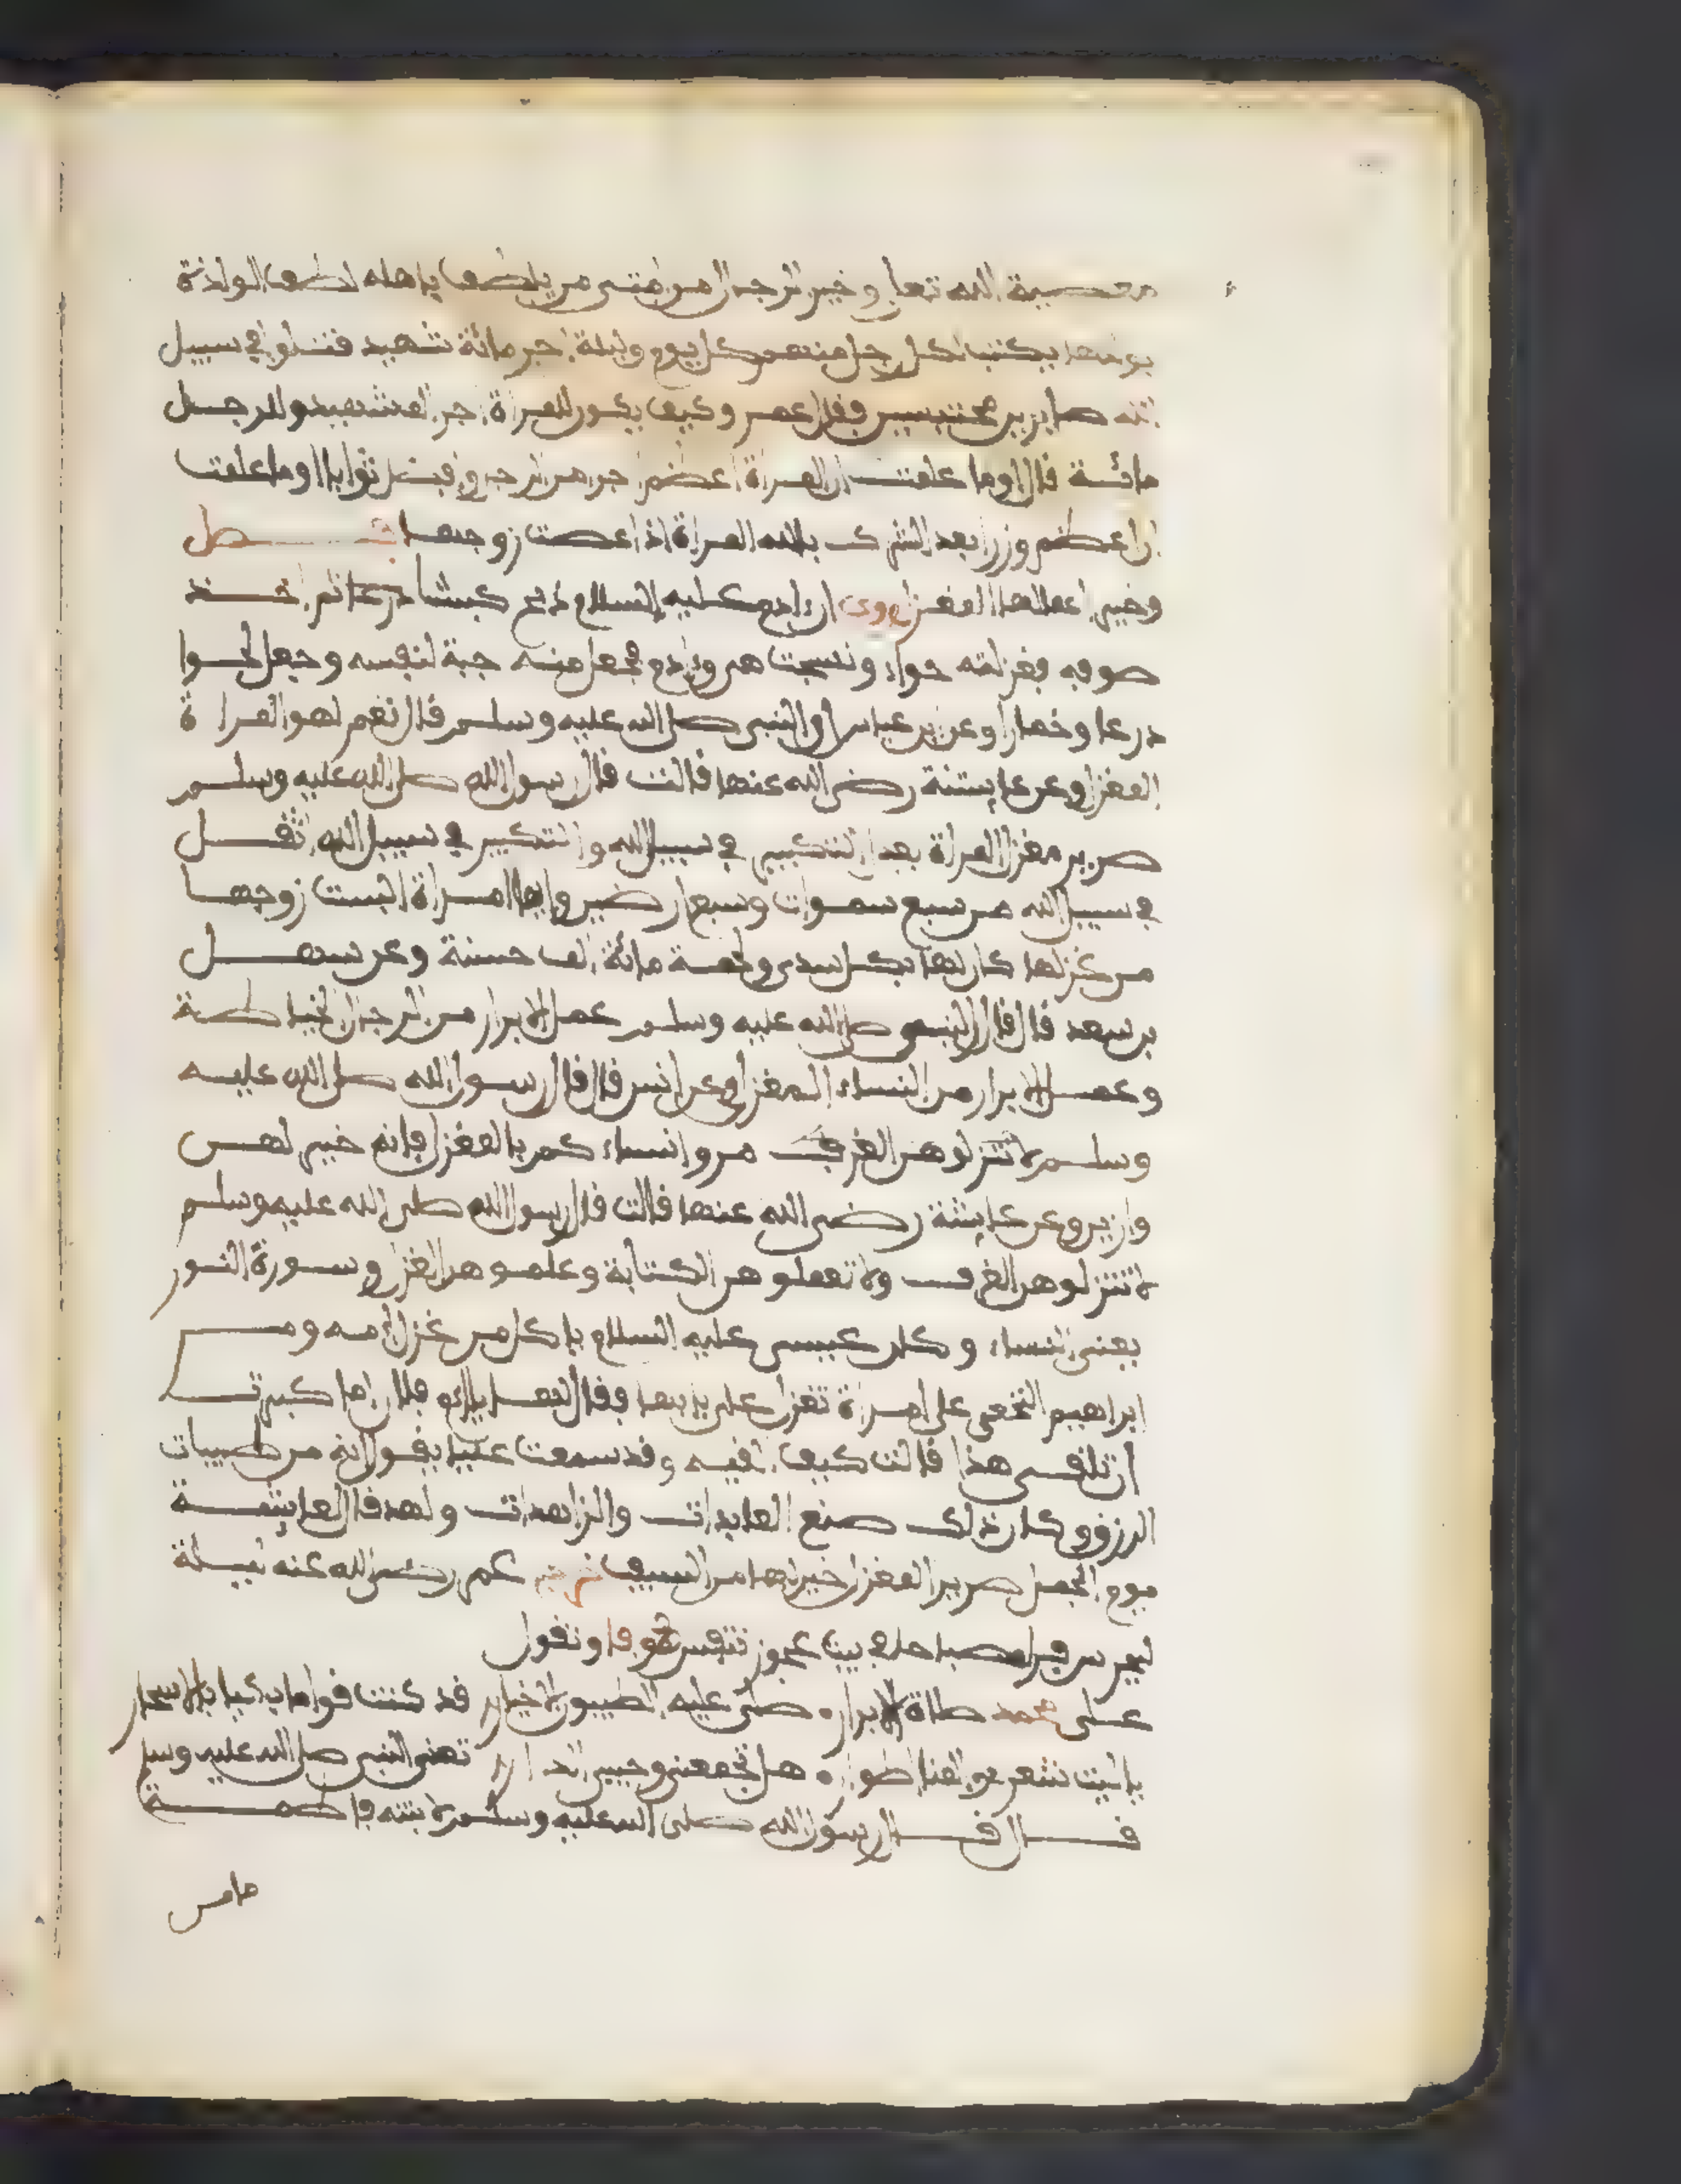 معصية الله تعالى وخير الرجال من امتي من يلطف باهله لطف الوالدة
بولدها يكتب لكل رجل منهم كل يوم وليلة اجر مائة شهيد قتلوا في سبيل
الله صابرين محتسبين فقال عمر وكيف يكون للمراة اجر الف شهيد وللرجل
مائة قال اوما علمت ان المراة اعظم اجر من الرجل وافضل ثوابا اوما علمت
ان اعظم وزرا بعد الشرك بالله المراة اذا عصت زوجها فصل
وخير اعمالها المغزل روي ان ءادم عليه السلام ذبح كبشا ثم اخذ
صوفه فغزلته حواء ونسجت هي وءادم فجعل منه جبة لنفسه وجعل لحوا
درعا وخمارا وعن ابن عباس ان النبي صلى الله عليه وسلم قال نعم لهو المراة
المغزل وعن عايشة رضي الله عنها قالت قال رسول الله صلى الله عليه وسلم
صرير مغزل المراة يعدل التكبير في سبيل الله والتكبير في سبيل الله اثقل
في سبيل الله من سبع سموات وسبع ارضين وايما امراة البست زوجها
من غزلها كان لها بكل سدى ولحمة مائة الف حسنة وعن سهل
بن سعد قال قال النبي صلى الله عليه وسلم عمل الابرار من الرجال الخياطة
وعمل الابرار من النساء المغزل وعن انس قال قال رسول الله صلى الله عليه
وسلم لا تنزلوهن الغرف مروا نساءكم بالمغزل فانه خير لهن
وازين وعن عايشة رضي الله عنها قالت قال رسول الله صلى الله عليه وسلم
لا تنزلوهن الغرف ولا تعلموهن الكتابة وعلموهن الغزل وسورة النور
يعني النساء وكان عيسى عليه السلام ياكل من غزل امه ومر
ابراهيم النخعي على امراة تغزل على بابها فقال لها يا ام فلان اما كبرت
ان تلقي هذا قالت كيف القيه وقد سمعت عليا يقول انه من طيبات
الرزق وكان ذلك صنع العابدات والزاهدات ولقد قال لعايشة
يوم الجمل صرير المغزل خير لها من السيف خرج عمر رضي الله عنه ليلة
ليحرس فراى مصباحا في بيت عجوز تنفش صوفا وتقول
على محمد صلاة الابرار صلى عليه الطيبون الاخيار قد كنت قواما بكيا بالاسحار
يا ليت شعري والمنايا اطوار هل تجمعني وحبيبي الدار تعني النبي صلى الله عليه وسلم
قال قال رسول الله صلى الله عليه وسلم لابنته فاطمة
ما من